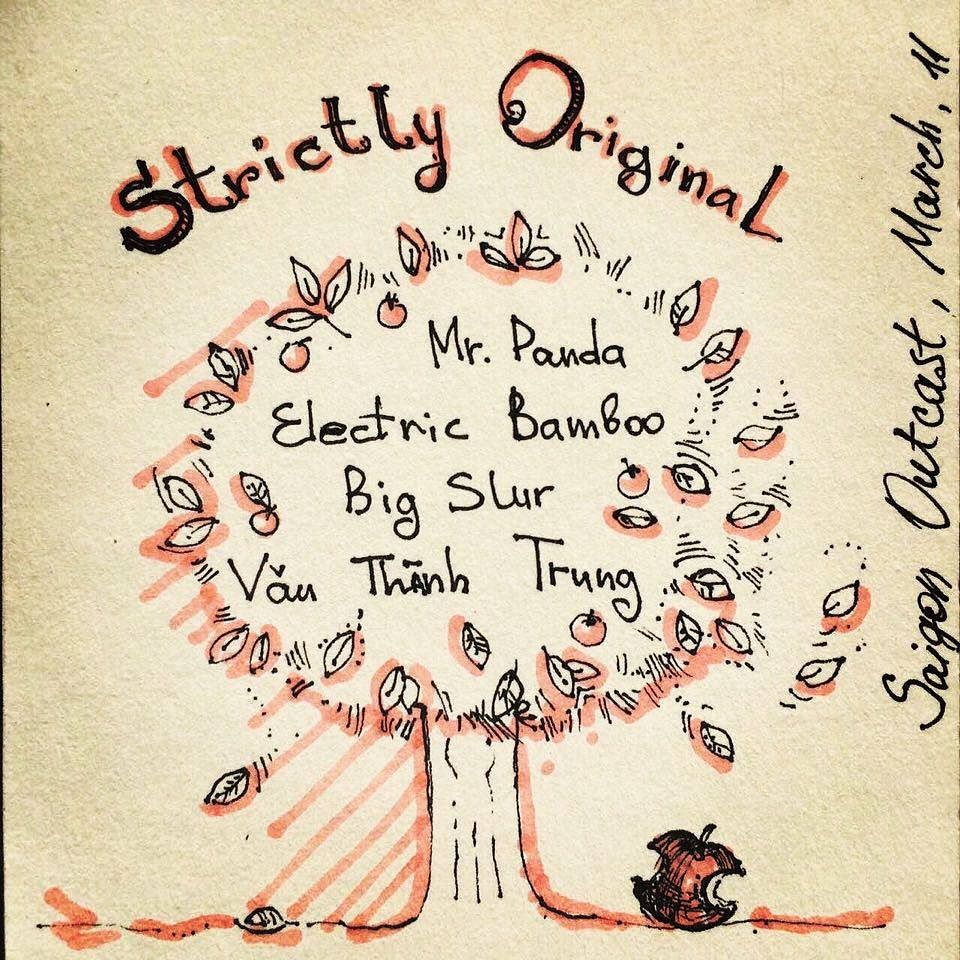 Strictly Original
Mr. Panda
Electric Bamboo
Big Slur
Văn Thãnh Trung
Saigon Outcast, March, 11